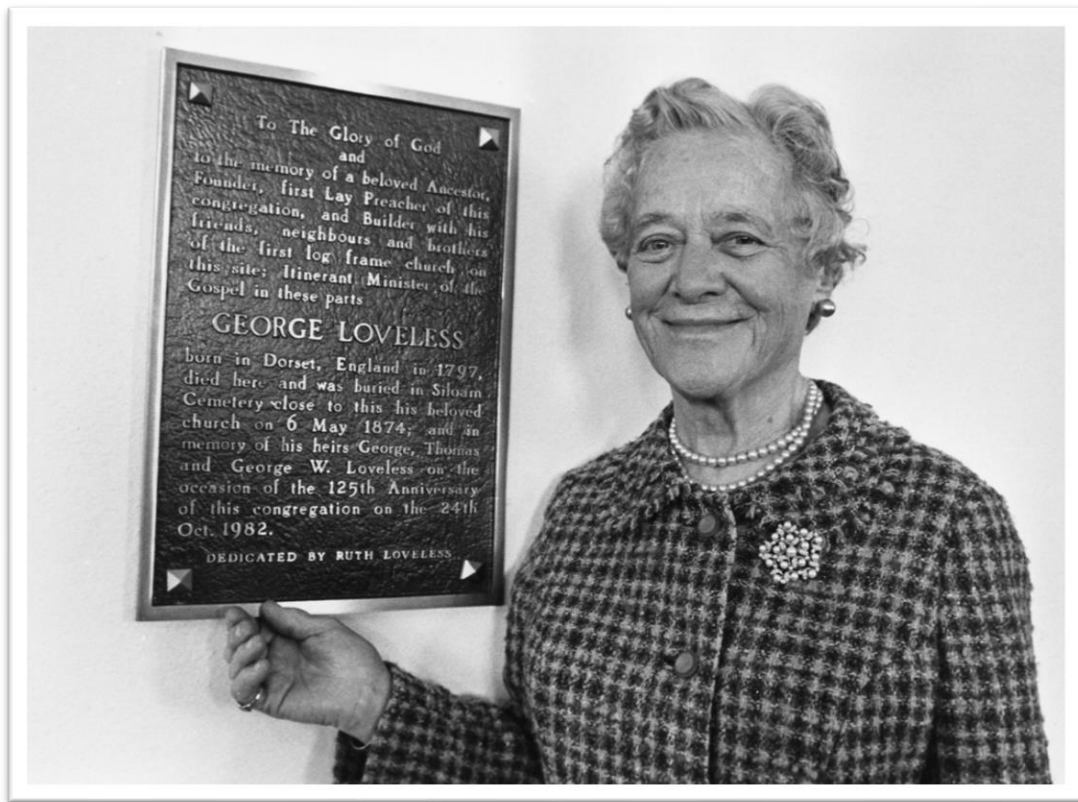 To The Glory of God
and
to the memory of a beloved Ancestor,
Founder, first Lay Preacher of this
congregation, and Builder with his
friends, neighbours and brothers
of the first log frame church on
this site; Itinerant Minister of the
Gospel in these parts
GEORGE LOVELESS
born in Dorset, England in 1797,
died here and was buried in Siloam
Cemetery close to this his beloved
church on 6 May 1874; and in
memory of his heirs George, Thomas
and George W. Loveless on the
occasion of the 125th Anniversary
of this congregation on the 24th
Oct. 1982.
DEDICATED BY RUTH LOVELESS